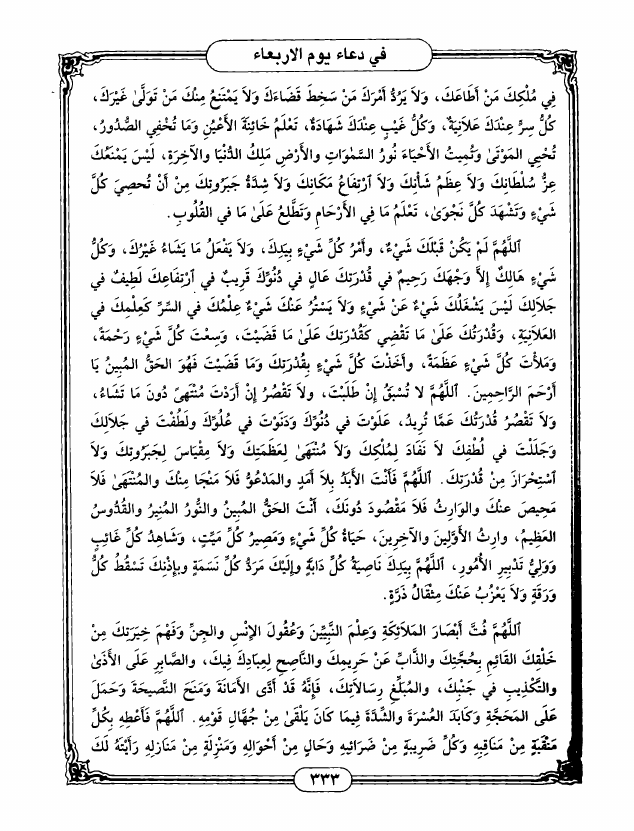 في دعاء يوم الاربعاء
فِي مُلْكِكَ مَنْ أَطَاعَكَ، وَلَا يَرُدُّ أَمْرَكَ مَنْ سَخِطَ قَضَاءَكَ وَلَا يَمْتَنِعُ مِنْكَ مَنْ تَوَلَّىٰ غَيْرَكَ،
كُلُّ سِرٍّ عِنْدَكَ عَلَانِيَةٌ، وَكُلُّ غَيْبٍ عِنْدَكَ شَهَادَةٌ، تَعْلَمُ خَائِنَةَ الْأَعْيُنِ وَمَا تُخْفِي الصُّدُورُ،
تُحْيِي المَوْتَىٰ وَتُمِيتُ الأَحْيَاءَ نُورُ السَّمٰوَاتِ والأَرْضِ مَلِكُ الدُّنْيَا والآخِرَةِ، لَيْسَ يَمْنَعُكَ
عِزُّ سُلْطَانِكَ وَلَا عِظَمُ شَأْنِكَ وَلَا ٱرْتِفَاعُ مَكَانِكَ وَلَا شِدَّةُ جَبَرُوتِكَ مِنْ أَنْ تُحْصِيَ كُلَّ
شَيْءٍ وَتَشْهَدَ كُلَّ نَجْوَىٰ، تَعْلَمُ مَا فِي الأَرْحَامِ وَتَطَّلِعُ عَلَىٰ مَا في القُلُوبِ.
اَللّٰهُمَّ لَمْ يَكُنْ قَبْلَكَ شَيْءٌ، وأَمْرُ كُلِّ شَيْءٍ بِيَدِكَ، وَلَا يَفْعَلُ مَا يَشَاءُ غَيْرُكَ، وَكُلُّ
شَيْءٍ هَالِكٌ إِلاَّ وَجْهَكَ رَحِيمٌ في قُدْرَتِكَ عَالٍ في دُنُوِّكَ قَرِيبٌ في ٱرْتِفَاعِكَ لَطِيفٌ في
جَلَالِكَ لَيْسَ يَشْغَلُكَ شَيْءٌ عَنْ شَيْءٍ وَلَا يَسْتُرُ عَنْكَ شَيْءٌ عِلْمُكَ في السِّرِّ كَعِلْمِكَ في
العَلَانِيَةِ، وَقُدْرَتُكَ عَلَىٰ مَا تَقْضِي كَقُدْرَتِكَ عَلَىٰ مَا قَضَيْتَ، وَسِعْتَ كُلَّ شَيْءٍ رَحْمَةً،
وَمَلَأْتَ كُلَّ شَيْءٍ عَظَمَةً، وَأَخَذْتَ كُلَّ شَيْءٍ بِقُدْرَتِكَ وَمَا قَضَيْتَ فَهُوَ الحَقُّ المُبِينُ يَا
أَرْحَمَ الرَّاحِمِينَ. اَللّٰهُمَّ لَا تُسْبَقُ إِنْ طَلَبْتَ، ولَا تَقْصُرُ إِنْ أَرَدْتَ مُنْتَهَىً دُونَ مَا تَشَاءُ،
وَلَا تَقْصُرُ قُدْرَتُكَ عَمَّا تُرِيدُ، عَلَوْتَ في دُنُوِّكَ وَدَنَوْتَ في عُلُوِّكَ ولَطُفْتَ في جَلَالِكَ
وَجَلَلْتَ في لُطْفِكَ لَا نَفَادَ لِمُلْكِكَ وَلَا مُنْتَهَىٰ لِعَظَمَتِكَ وَلَا مِقْيَاسَ لِجَبَرُوتِكَ وَلَا
ٱسْتِحْرَازَ مِنْ قُدْرَتِكَ. اَللّٰهُمَّ فَأَنْتَ الأَبَدُ بِلَا أَمَدٍ والمَدْعُوُّ فَلَا مَنْجَا مِنْكَ والمُنْتَهَىٰ فَلَا
مَحِيصَ عَنْكَ والوَارِثُ فَلَا مَقْصُودَ دُونَكَ، أَنْتَ الحَقُّ المُبِينُ والنُّورُ المُنِيرُ والقُدُّوسُ
العَظِيمُ، وارِثُ الأَوَّلِينَ والآخِرِينَ، حَيَاةُ كُلِّ شَيْءٍ وَمَصِيرُ كُلِّ مَيِّتٍ، وَشَاهِدُ كُلِّ غَائِبٍ
وَوَلِيُّ تَدْبِيرِ الأُمُورِ، اَللّٰهُمَّ بِيَدِكَ نَاصِيَةُ كُلِّ دَابَّةٍ وإِلَيْكَ مَرَدُّ كُلِّ نَسَمَةٍ وبِإِذْنِكَ تَسْقُطُ كُلُّ
وَرَقَةٍ وَلَا يَعْزُبُ عَنْكَ مِثْقَالُ ذَرَّةٍ.
اَللّٰهُمَّ فُتَّ أَبْصَارَ المَلَائِكَةِ وَعِلْمَ النَّبِيِّينَ وَعُقُولَ الإِنْسِ والجِنِّ وَفَهْمَ خِيَرَتِكَ مِنْ
خَلْقِكَ القَائِمِ بِحُجَّتِكَ والذَّابِّ عَنْ حَرِيمِكَ والنَّاصِحِ لِعِبَادِكَ فِيكَ، والصَّابِرِ عَلَى الأَذَىٰ
والتَّكْذِيبِ في جَنْبِكَ، والمُبَلِّغِ رِسَالَاتِكَ، فَإِنَّهُ قَدْ أَدَّى الأَمَانَةَ وَمَنَحَ النَّصِيحَةَ وَحَمَلَ
عَلَى المَحَجَّةِ وَكَابَدَ العُسْرَةَ والشِّدَّةَ فِيمَا كَانَ يَلْقَىٰ مِنْ جُهَّالِ قَوْمِهِ. اَللّٰهُمَّ فَأَعْطِهِ بِكُلِّ
مَنْقَبَةٍ مِنْ مَنَاقِبِهِ وَكُلِّ ضَرِيبَةٍ مِنْ ضَرَائِبِهِ وَحَالٍ مِنْ أَحْوَالِهِ وَمَنْزِلَةٍ مِنْ مَنَازِلِهِ رَأَيْتَهُ لَكَ
٣٣٣